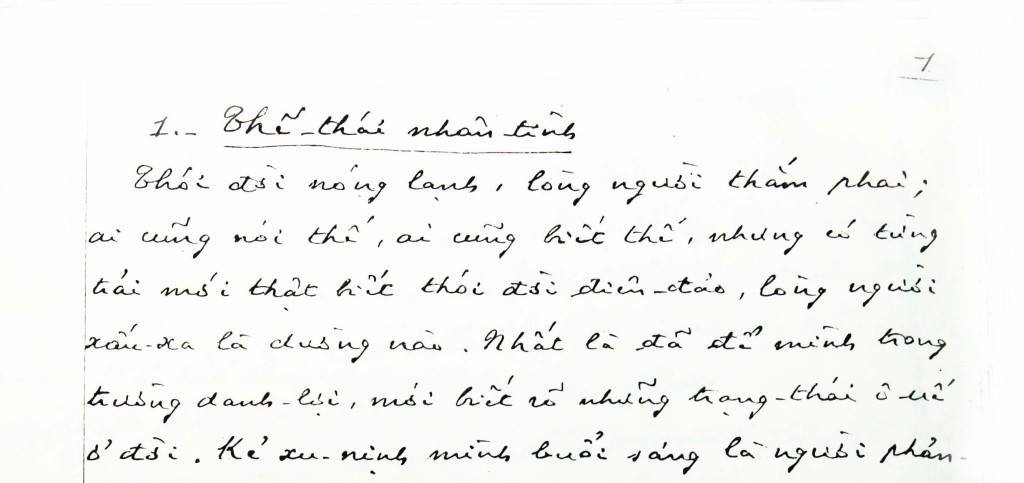 1
1.- Thế-thái nhân-tình
Thói đời nóng lạnh, lòng người thắm phai;
ai cũng nói thế, ai cũng biết thế, nhưng có từng
trải mới thật biết thói đời điên-đảo, lòng người
xấu-xa là dường nào. Nhất là đã để mình trong
trường danh-lợi, mới biết rõ những trạng-thái ô-uế
ở đời. Kẻ xu-nịnh mình buổi sáng là người phản-